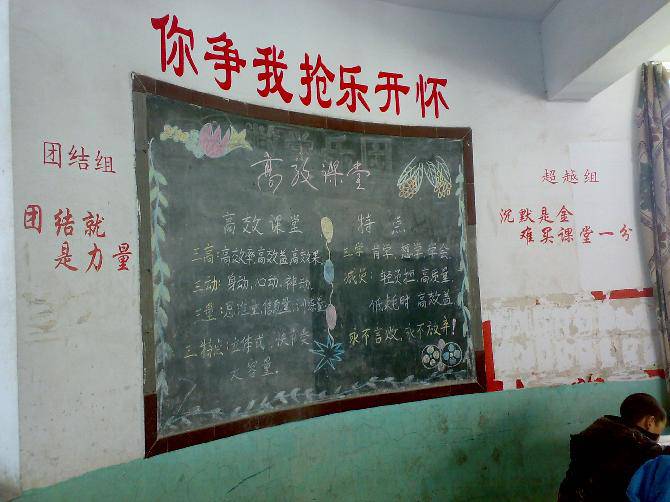 你争我抢乐开怀
团结组
团结就
是力量
高效课堂
高效课堂
三高:高效率高效益高效果
三动:身动、心动、神动
三量:思维量信息量训练量
三特点:立体式、快节奏
大容量
特点
三学:肯学、想学、学会
减负:轻负担、高质量
低耗时、高效益
永不言败,永不放弃!
超越组
沉默是金
难买课堂一分